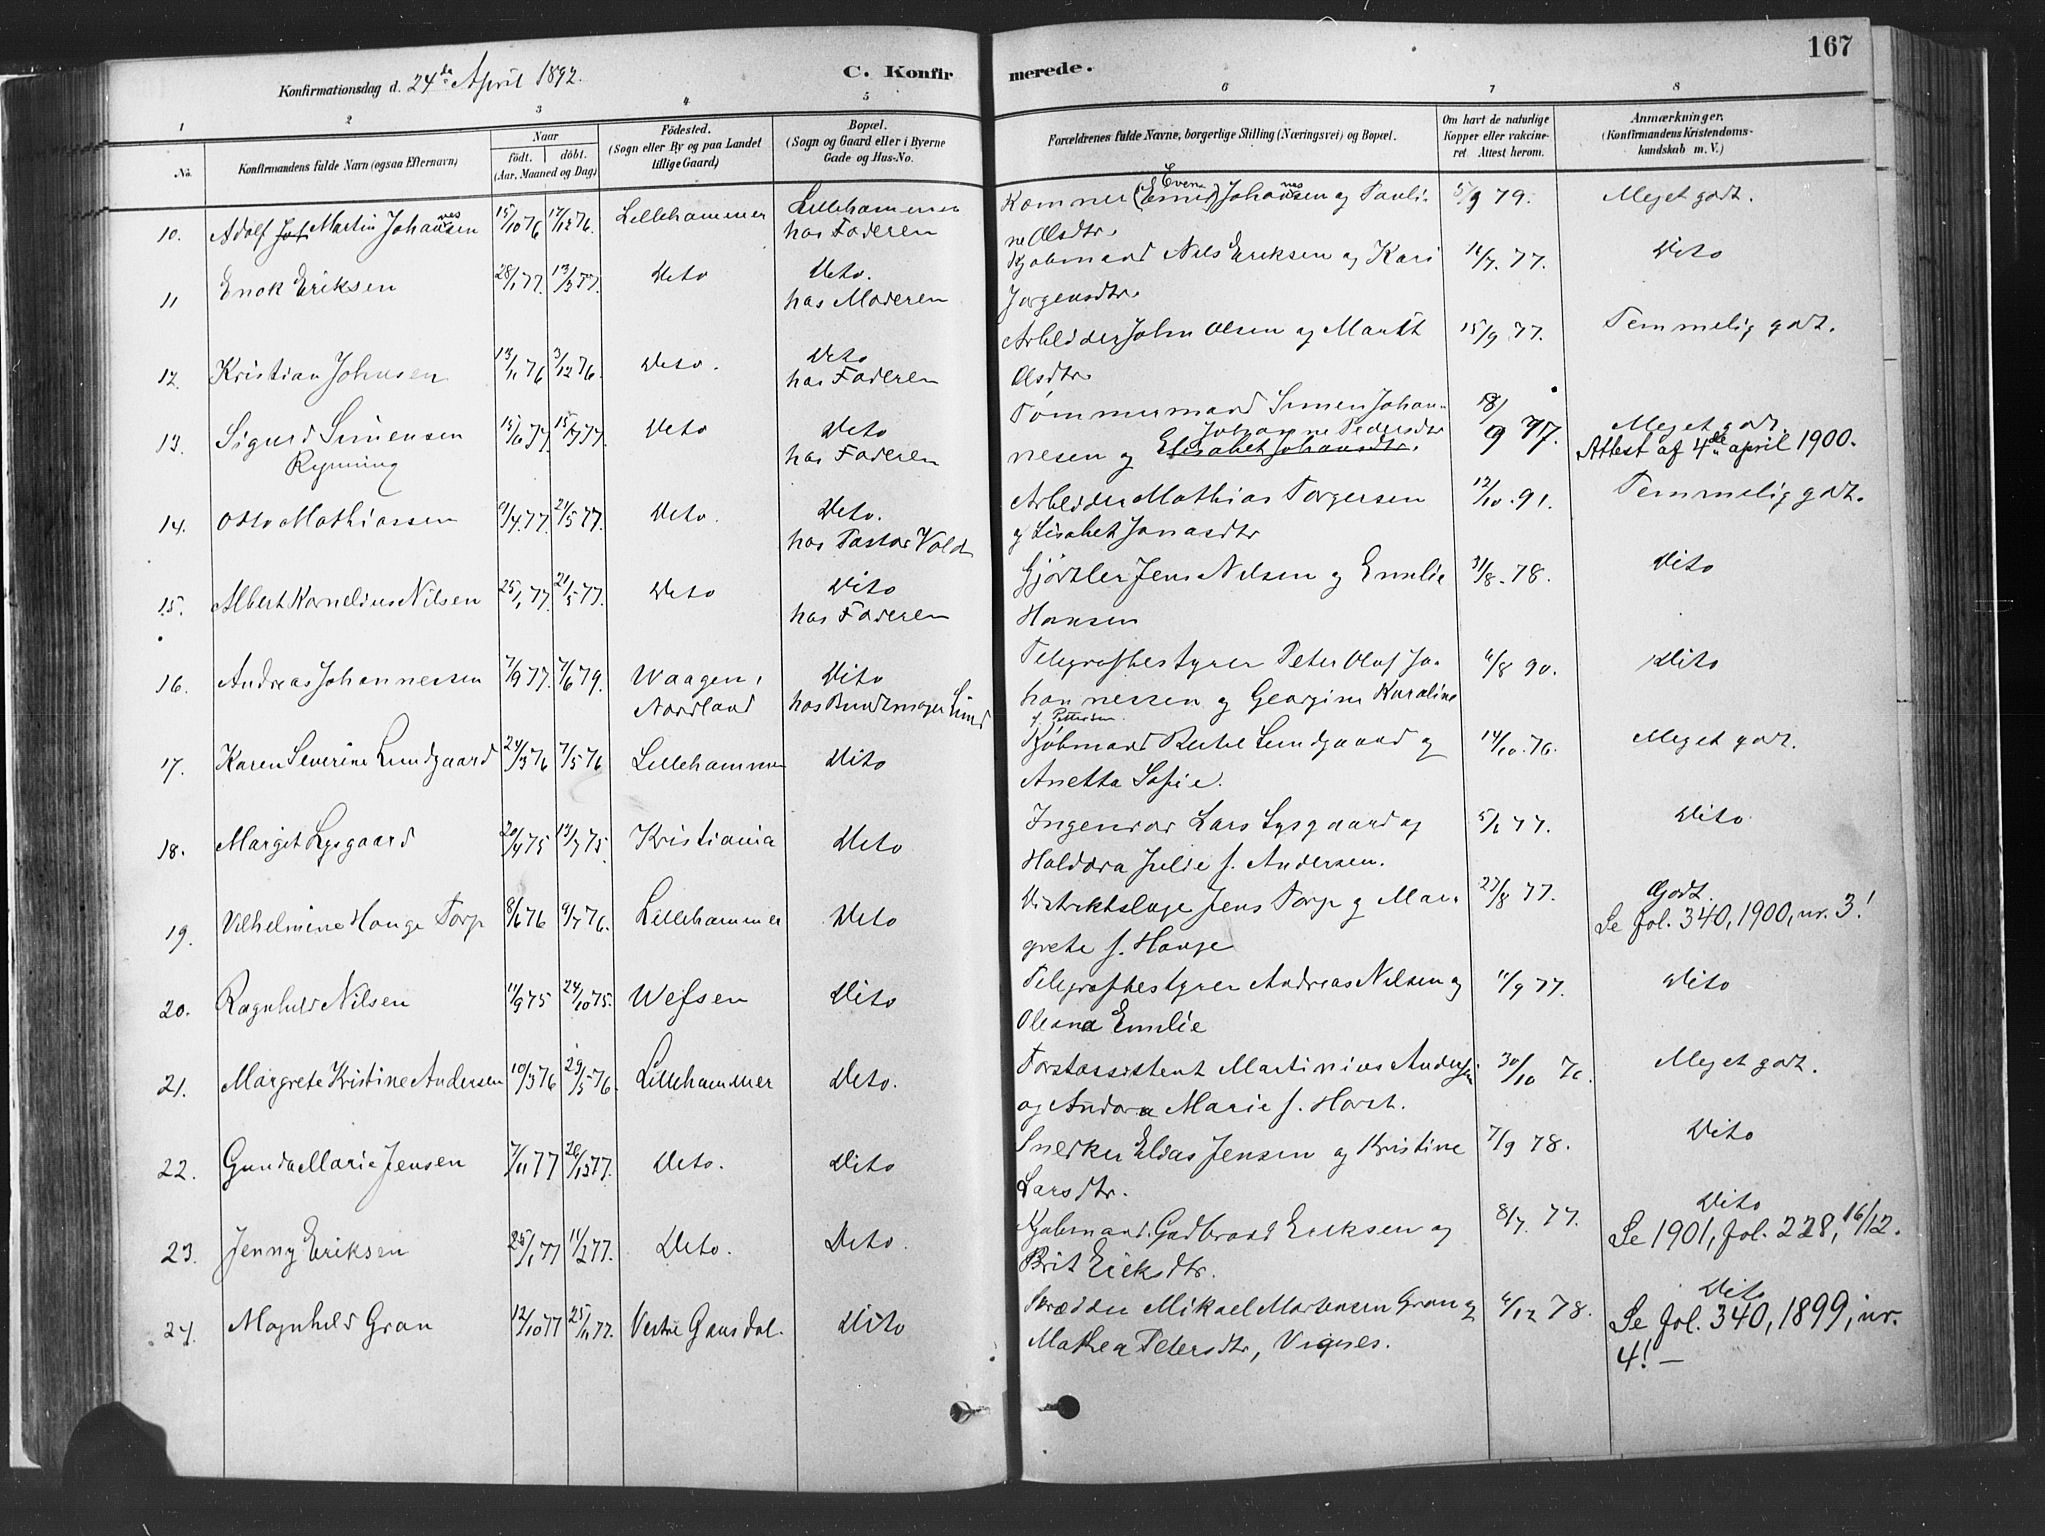 167
Konfirmationsdag d. 24de April 1892.
C. Konfirmerede.
1 2 3 4 5 6 7 8
No.
Konfirmandens fulde Navn (ogsaa Efternavn)
Naar
födt. döbt.
(Aar, Maaned og Dag)
Födested.
(Sogn eller By og paa Landet
tillige Gaard)
Bopæl.
(Sogn og Gaard eller i Byerne
Gade og Hus-No.
Forældrenes fulde Navne, borgerlige Stilling (Næringsvei) og Bopæl.
Om havt de naturlige
Kopper eller vakcine-
ret Attest herom.
Anmærkninger.
(Konfirmandens Kristendoms-
kundskab m. V.)
10. Adolf Martin Johannesen 15/10 76 17/12 76. Lillehammer Lillehammer
hos Faderen
(Even) Johannesen og Pauli-
ne Olsdtr. 5/9 79. Meget godt.
11 Enok Eriksen 28/1 77. 13/3 77. Dito Dito.
hos Moderen
Kjøbmand Nils Eriksen og Kari
Jørgensdtr. 16/7. 77. Dito
12. Kristian Johnsen 13/11 76 3/12 76. Dito. Dito
hos Faderen
Arbeider John Olsen og Marit
Olsdtr. 15/9 77. Temmelig godt.
13. Sigurd Simensen
Rynning 15/6 77. 15/7 77. Dito Dito
hos Faderen
Tømmermand Simen Johan-
Johanne Pedersdtr
nesen og Elisabet Johansdtr. 18/9 77. Meget godt.
Attest af 4de april 1900.
14. Otto Mathiassen 9/4 77. 21/5 77. Dito. Dito.
hos Pastor Vold
Arbeider Mathias Torgersen
og Lisabet Jonasdtr 12/10. 91. Temmelig godt.
15. Albert Kornelius Nilsen 25/1 77. 21/5 77. Dito Dito
hos Faderen
Gjørtler Jens Nilsen og Emilie
Hansen 31/8. 78. Dito
16. Andreas Johannessen 7/9 77. 7/6 79. Waagen,
Nordland Dito
hos Bundtmager Lund
Telegrafbestyrer Peter Olaf Jo-
hannessen og Georgine Karoline
f. Pettersen 6/8 90. Dito
17. Karen Severine Lundgaard 24/3 76 7/5 76 Lillehammer Dito
Kjøbmand Lundgaard og
Anetta Sofie. 14/10. 76. Meget godt.
18. Margit Lysgaard 20/4 75 13/7 75. Kristiania Dito
Ingeniør Lars Lysgaard og
Haldora Julie f. Andersen. 5/1 77. Dito
19. Vilhelmine Hauge Torp 8/6 76 9/7 76. Lillehammer Dito
Distriktslæge Jens Torp og Mar-
grete f. Hauge 27/8 77. Godt.
Se fol. 340, 1900, nr. 3!
20. Ragnhild Nilsen 11/9 75 24/10 75. Wefsen Dito
Telegrafbestyrer Andreas Nilsen og
Oleana Emilie 11/9 77. Dito
21. Margrete Kristine Andersen 10/3 76 29/5 76. Lillehammer Dito.
Forstassistent Martinius Andersen
og Andora Marie f. Horst. 30/10 76. Meget godt.
22. Gunda Marie Jensen 7/11 77 26/12 77. Dito. Dito
Snedker Elias Jensen og Kristine
Larsdtr. 7/9 78. Dito
23. Jenny Eriksen 25/1 77 11/2 77. Dito. Dito.
Kjøbmand Gudbrand Eriksen og
Brit Eriksdtr. 8/7. 77. Dito
Se 1901, fol. 228, 16/12.
24. Magnhild Gran 12/10 77 25/11 77. Vestre Gausdal. Dito
Skrædder Mikael Mortensen Gran og
Mathea Petersdtr, Vignes. 6/12 78. Dito
Se fol. 340, 1899, nr.
4! —